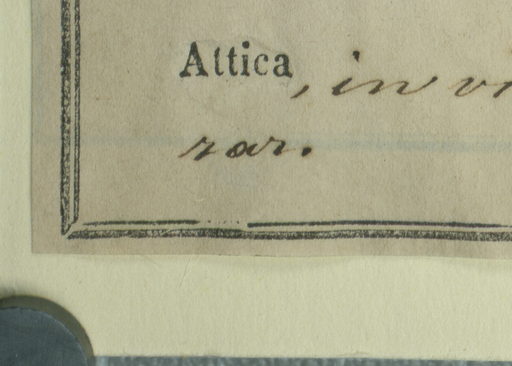 Attica, in
rar.